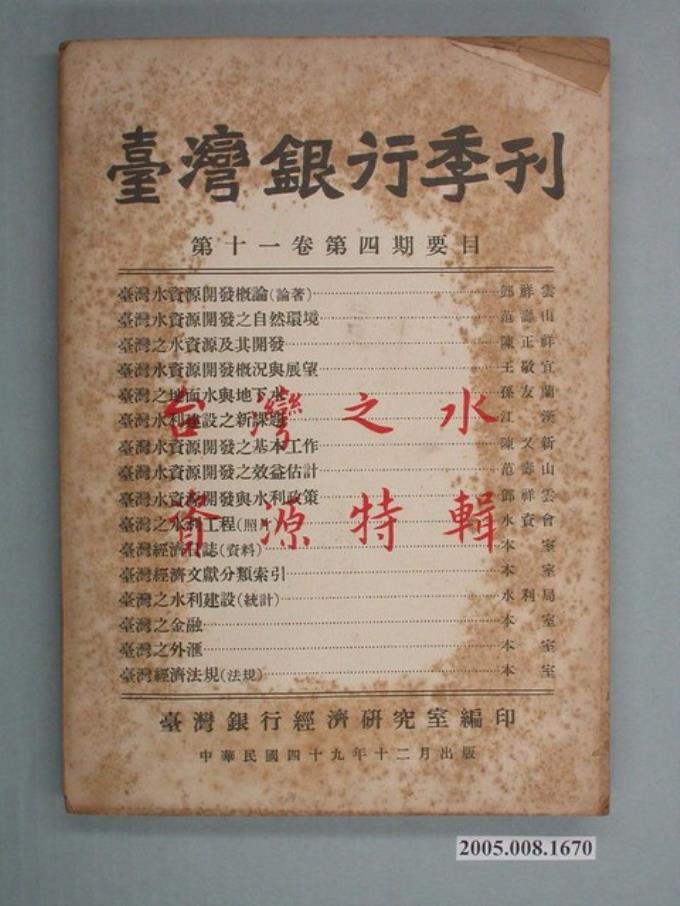 臺灣銀行季刊
第十一卷第四期要目
臺灣水資源開發概論(論著)……鄧祥雲
臺灣水資源開發之自然環境……范壽山
臺灣之水資源及其開發……陳正祥
臺灣水資源開發概況與展望……王敬宜
臺灣之地面水與地下水……孫友蘭
臺灣水利建設之新課題……江漢
臺灣水資源開發之基本工作……陳又新
臺灣水資源開發之效益估計……范壽山
臺灣水資源開發與水利政策……鄧祥雲
臺灣之水利工程(照片)……水資會
臺灣經濟日誌(資料)……本室
臺灣經濟文獻分類索引……本室
臺灣之水利建設(統計)……水利局
臺灣之金融……本室
臺灣之外滙……本室
臺灣經濟法規(法規)……本室
台灣之水
資源特輯
臺灣銀行經濟研究室編印
中華民國四十九年十二月出版
2005.008.1670